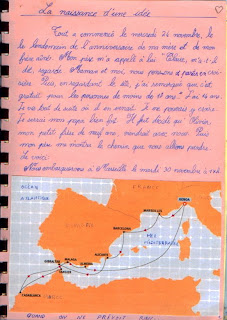 La naissance d'une idée
Tout a commencé le mercredi 24 novembre, le
lendemain de l'anniversaire de ma mère et de mon
frère aîné. Mon père m'a appelé à lui.
dit, regarde Maman et moi nous pensons partir en croi-
sière. Puis, en regardant le site, j'ai remarqué que c'est
gratuit pour les personnes de moins de ans. J'ai ans.
Je me tout de suite où il en venait. Je ne pouvais y croire.
Je serrai mon papa bien fort. Il fut décidé qu'
mon petit frère de neuf ans, viendrait avec nous. Puis
mon père me montra le chemin que nous allons prendre.
Le voici.
Nous embarquerons à Marseille le mardi 30 novembre à
OCEAN
ATLANTIQUE
FRANCE
GENOA
MARSEILLE
BARCELONE
MER
MEDITERRANEE
ALICANTE
ALMERIA
MALAGA
GIBRALTAR
CASABLANCA
MAROC
QUAND ON NE PREVOIT